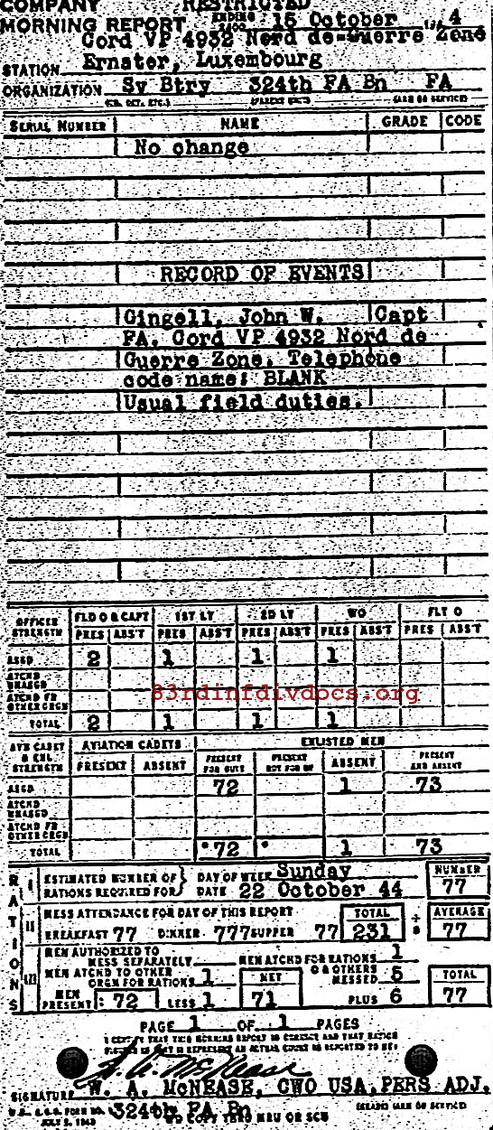 COMPANY RESTRICTED
MORNING REPORT ENDING 15 October 194 4
Cord VP 4932 Nord de-Guerre Zone
STATION Ernster, Luxembourg
ORGANIZATION Sv Btry 324th FA Bn FA
SERIAL NUMBER NAME GRADE CODE
No change
RECORD OF EVENTS
Gingell, John W. Capt
FA. Cord VP 4932 Nord de
Guerre Zone. Telephone
code name: BLANK
Usual field duties.
OFFICER STRENGTH FLD O & CAPT 1ST LT 2D LT WO FLT O
PRES ABS'T PRES ABS'T PRES ABS'T PRES ABS'T PRES ABS'T
ASGD 2 1 1 1
ATCHD UNASGD
ATCHD FR OTHER ORGN
83rdinfdivdocs.org
TOTAL 2 1 1 1
AVN CADET & ENL STRENGTH AVIATION CADETS ENLISTED MEN
PRESENT ABSENT PRESENT FOR DUTY PRESENT NOT FOR DUTY ABSENT PRESENT AND ABSENT
ASGD 72 1 73
ATCHD UNASGD
ATCHD FR OTHER ORGN
TOTAL 72 1 73
RATIONS
I ESTIMATED NUMBER OF RATIONS REQUIRED FOR DAY OF WEEK Sunday NUMBER
DATE 22 October 44 77
II MESS ATTENDANCE FOR DAY OF THIS REPORT TOTAL ÷ AVERAGE
BREAKFAST 77 DINNER 777 SUPPER 77 231 3 77
III MEN AUTHORIZED TO MESS SEPARATELY MEN ATCHD FOR RATIONS 1
MEN ATCHD TO OTHER ORGN FOR RATIONS 1 NET O & OTHERS MESSED 5 TOTAL
MEN PRESENT: 72 LESS 1 71 PLUS 6 77
PAGE 1 OF 1 PAGES
I CERTIFY THAT THIS MORNING REPORT IS CORRECT AND THAT RATION
W. A. McNease
SIGNATURE W. A. McNEASE, CWO USA, PERS ADJ.
324th FA Bn
W.D., A.G.O. FORM NO. 1
JULY 5, 1943 WD COPY THRU MRU OR SCU